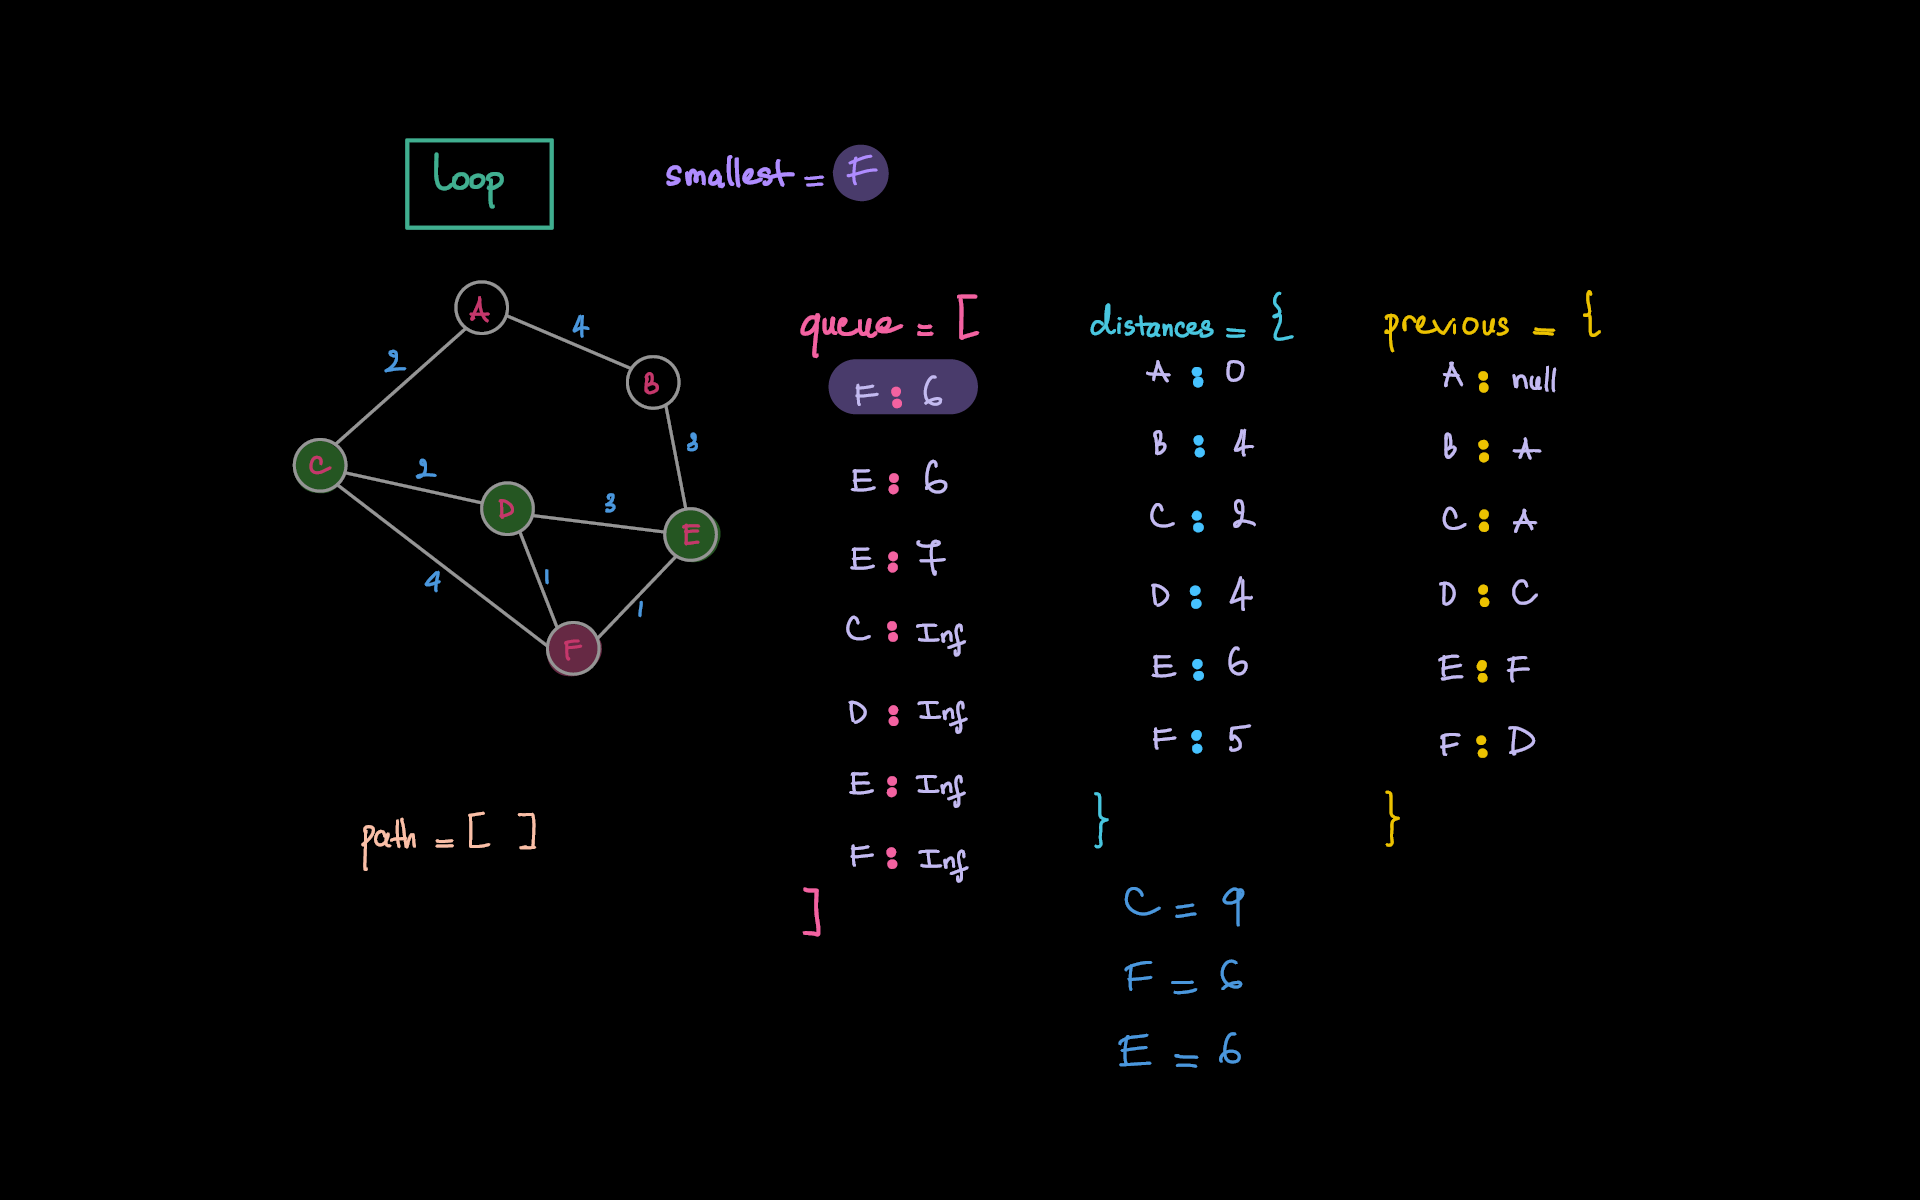 Loop
smallest = F
A
4
2
B
3
C
2
D
3
E
4
1
1
F
path = [ ]
queue = [
F : 6
E : 6
E : 7
C : Inf
D : Inf
E : Inf
F : Inf
]
distances = {
A : 0
B : 4
C : 2
D : 4
E : 6
F : 5
}
C = 9
F = 6
E = 6
previous = {
A : null
B : A
C : A
D : C
E : F
F : D
}